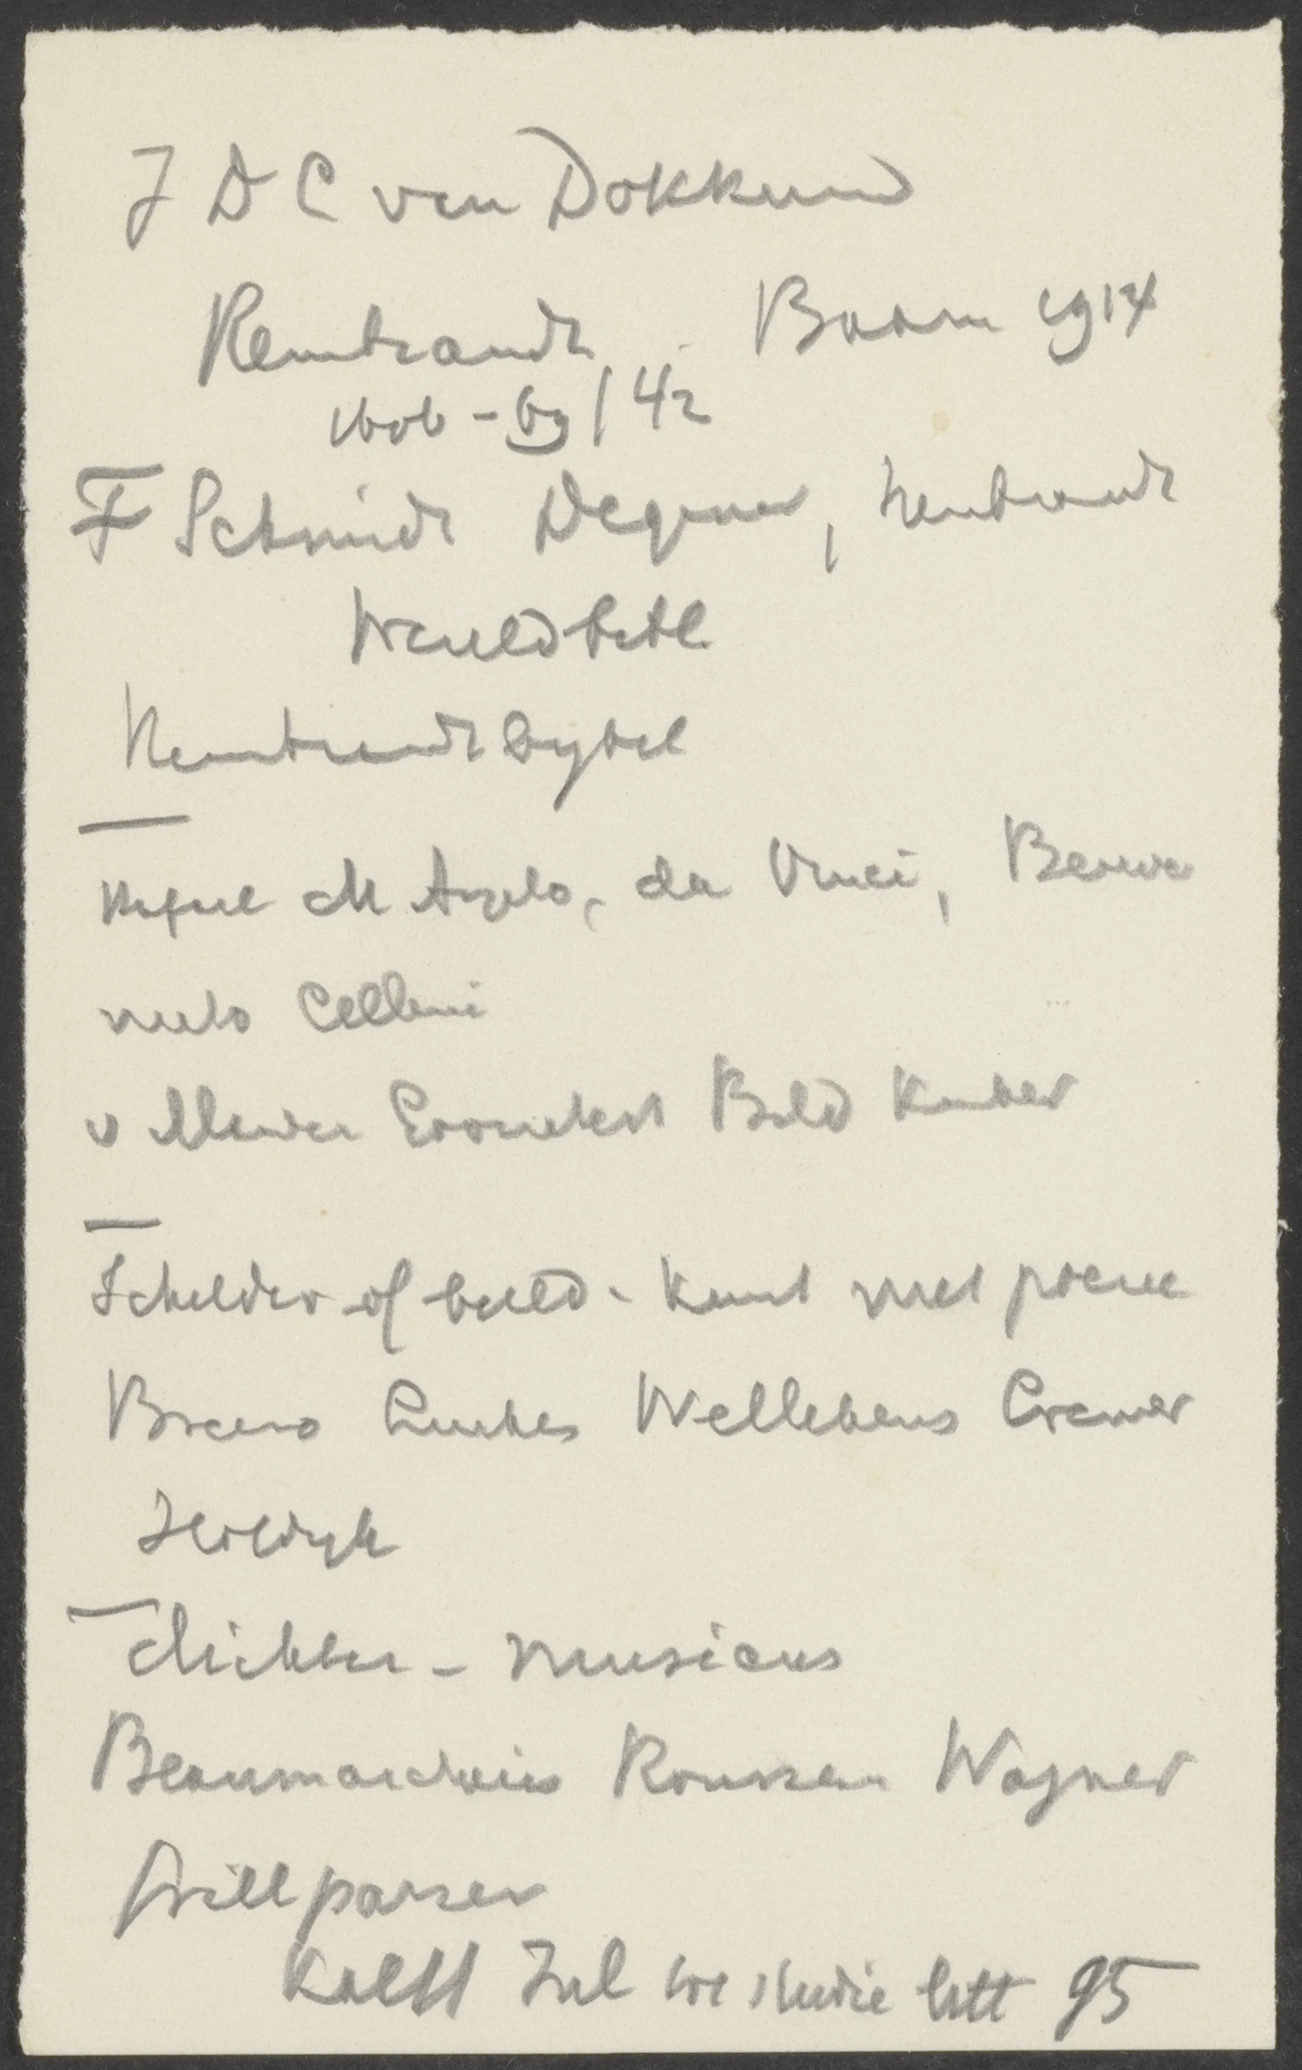 J D C van Dokkum
Rembrandt Baarn 1914
1606-69 / 42
F Schmidt Degener, Rembrandt
Wereldbibl.
Rembrandtbybel
Rafael M Angelo, da Vinci, Benve
nuto Cellini
v Mander Bild
Schilder of beeld-kunst met poezie
Breero Luikes Wellekens Cramer
dichter - musicus
Beaumarchais Rousseau Wagner
Grillparzer
Kalff Inl we studie lett 95